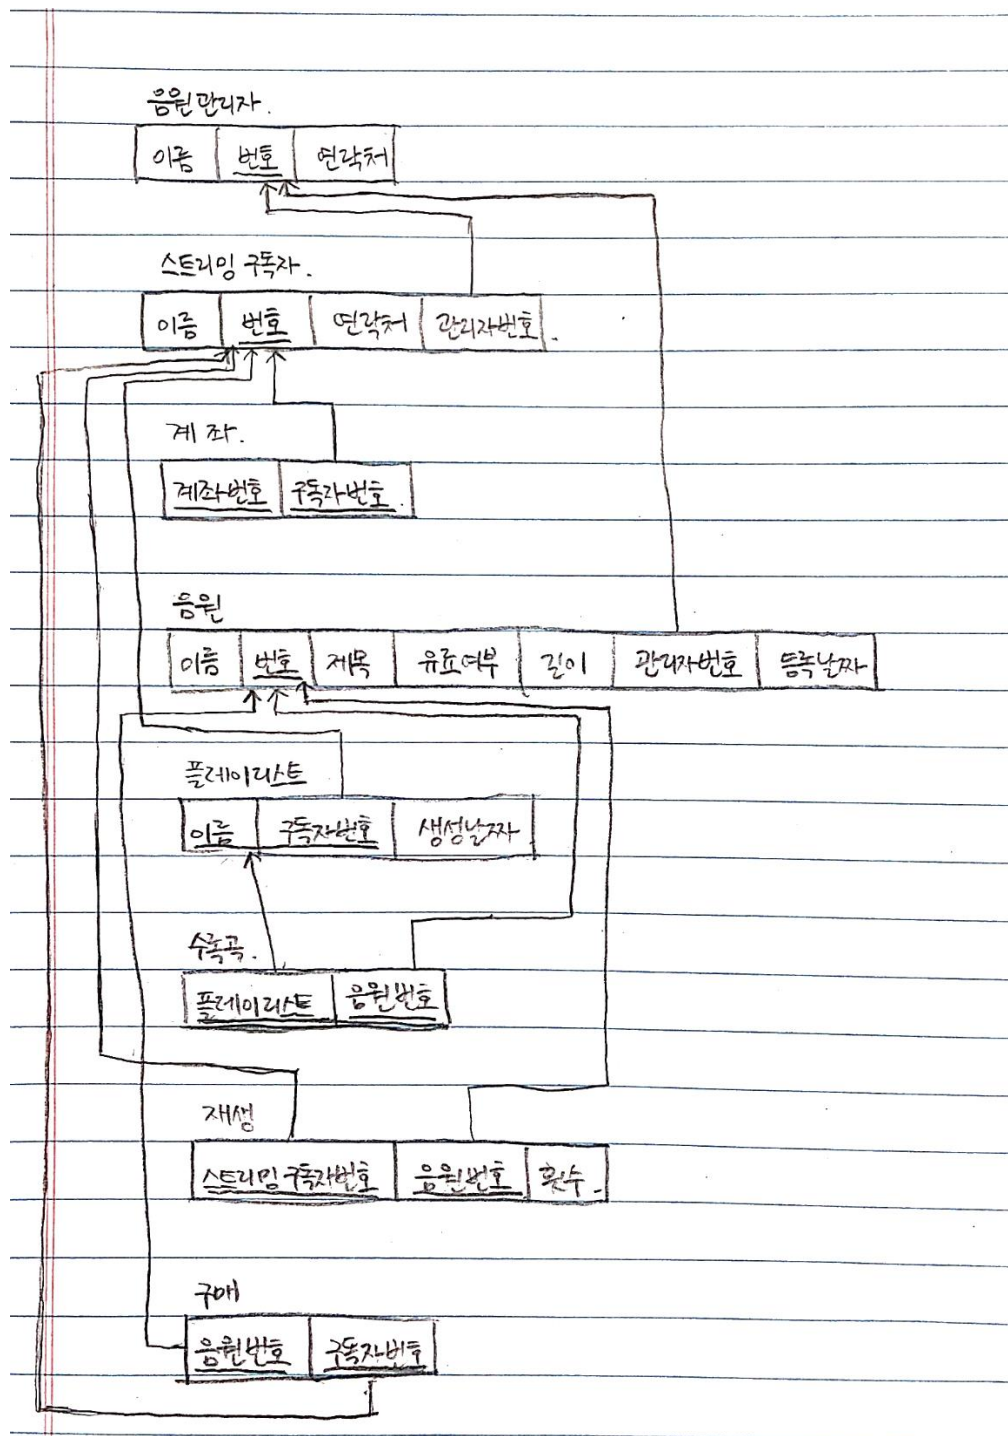 음원관리자.
이름 번호 연락처
스트리밍 구독자.
이름 번호 연락처 관리자번호.
계좌.
계좌번호 구독자번호.
음원
이름 번호 제목 유료여부 길이 관리자번호 등록날짜
플레이리스트
이름 구독자번호 생성날짜
수록곡.
플레이리스트 음원번호
재생
스트리밍 구독자번호 음원번호 횟수.
구매
음원번호 구독자번호